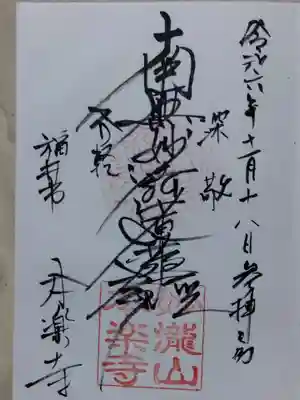 令和六年十一月十八日参拝之
深敬
南無妙法蓮華経
不軽
福寿
楽寺
瀧山
楽寺